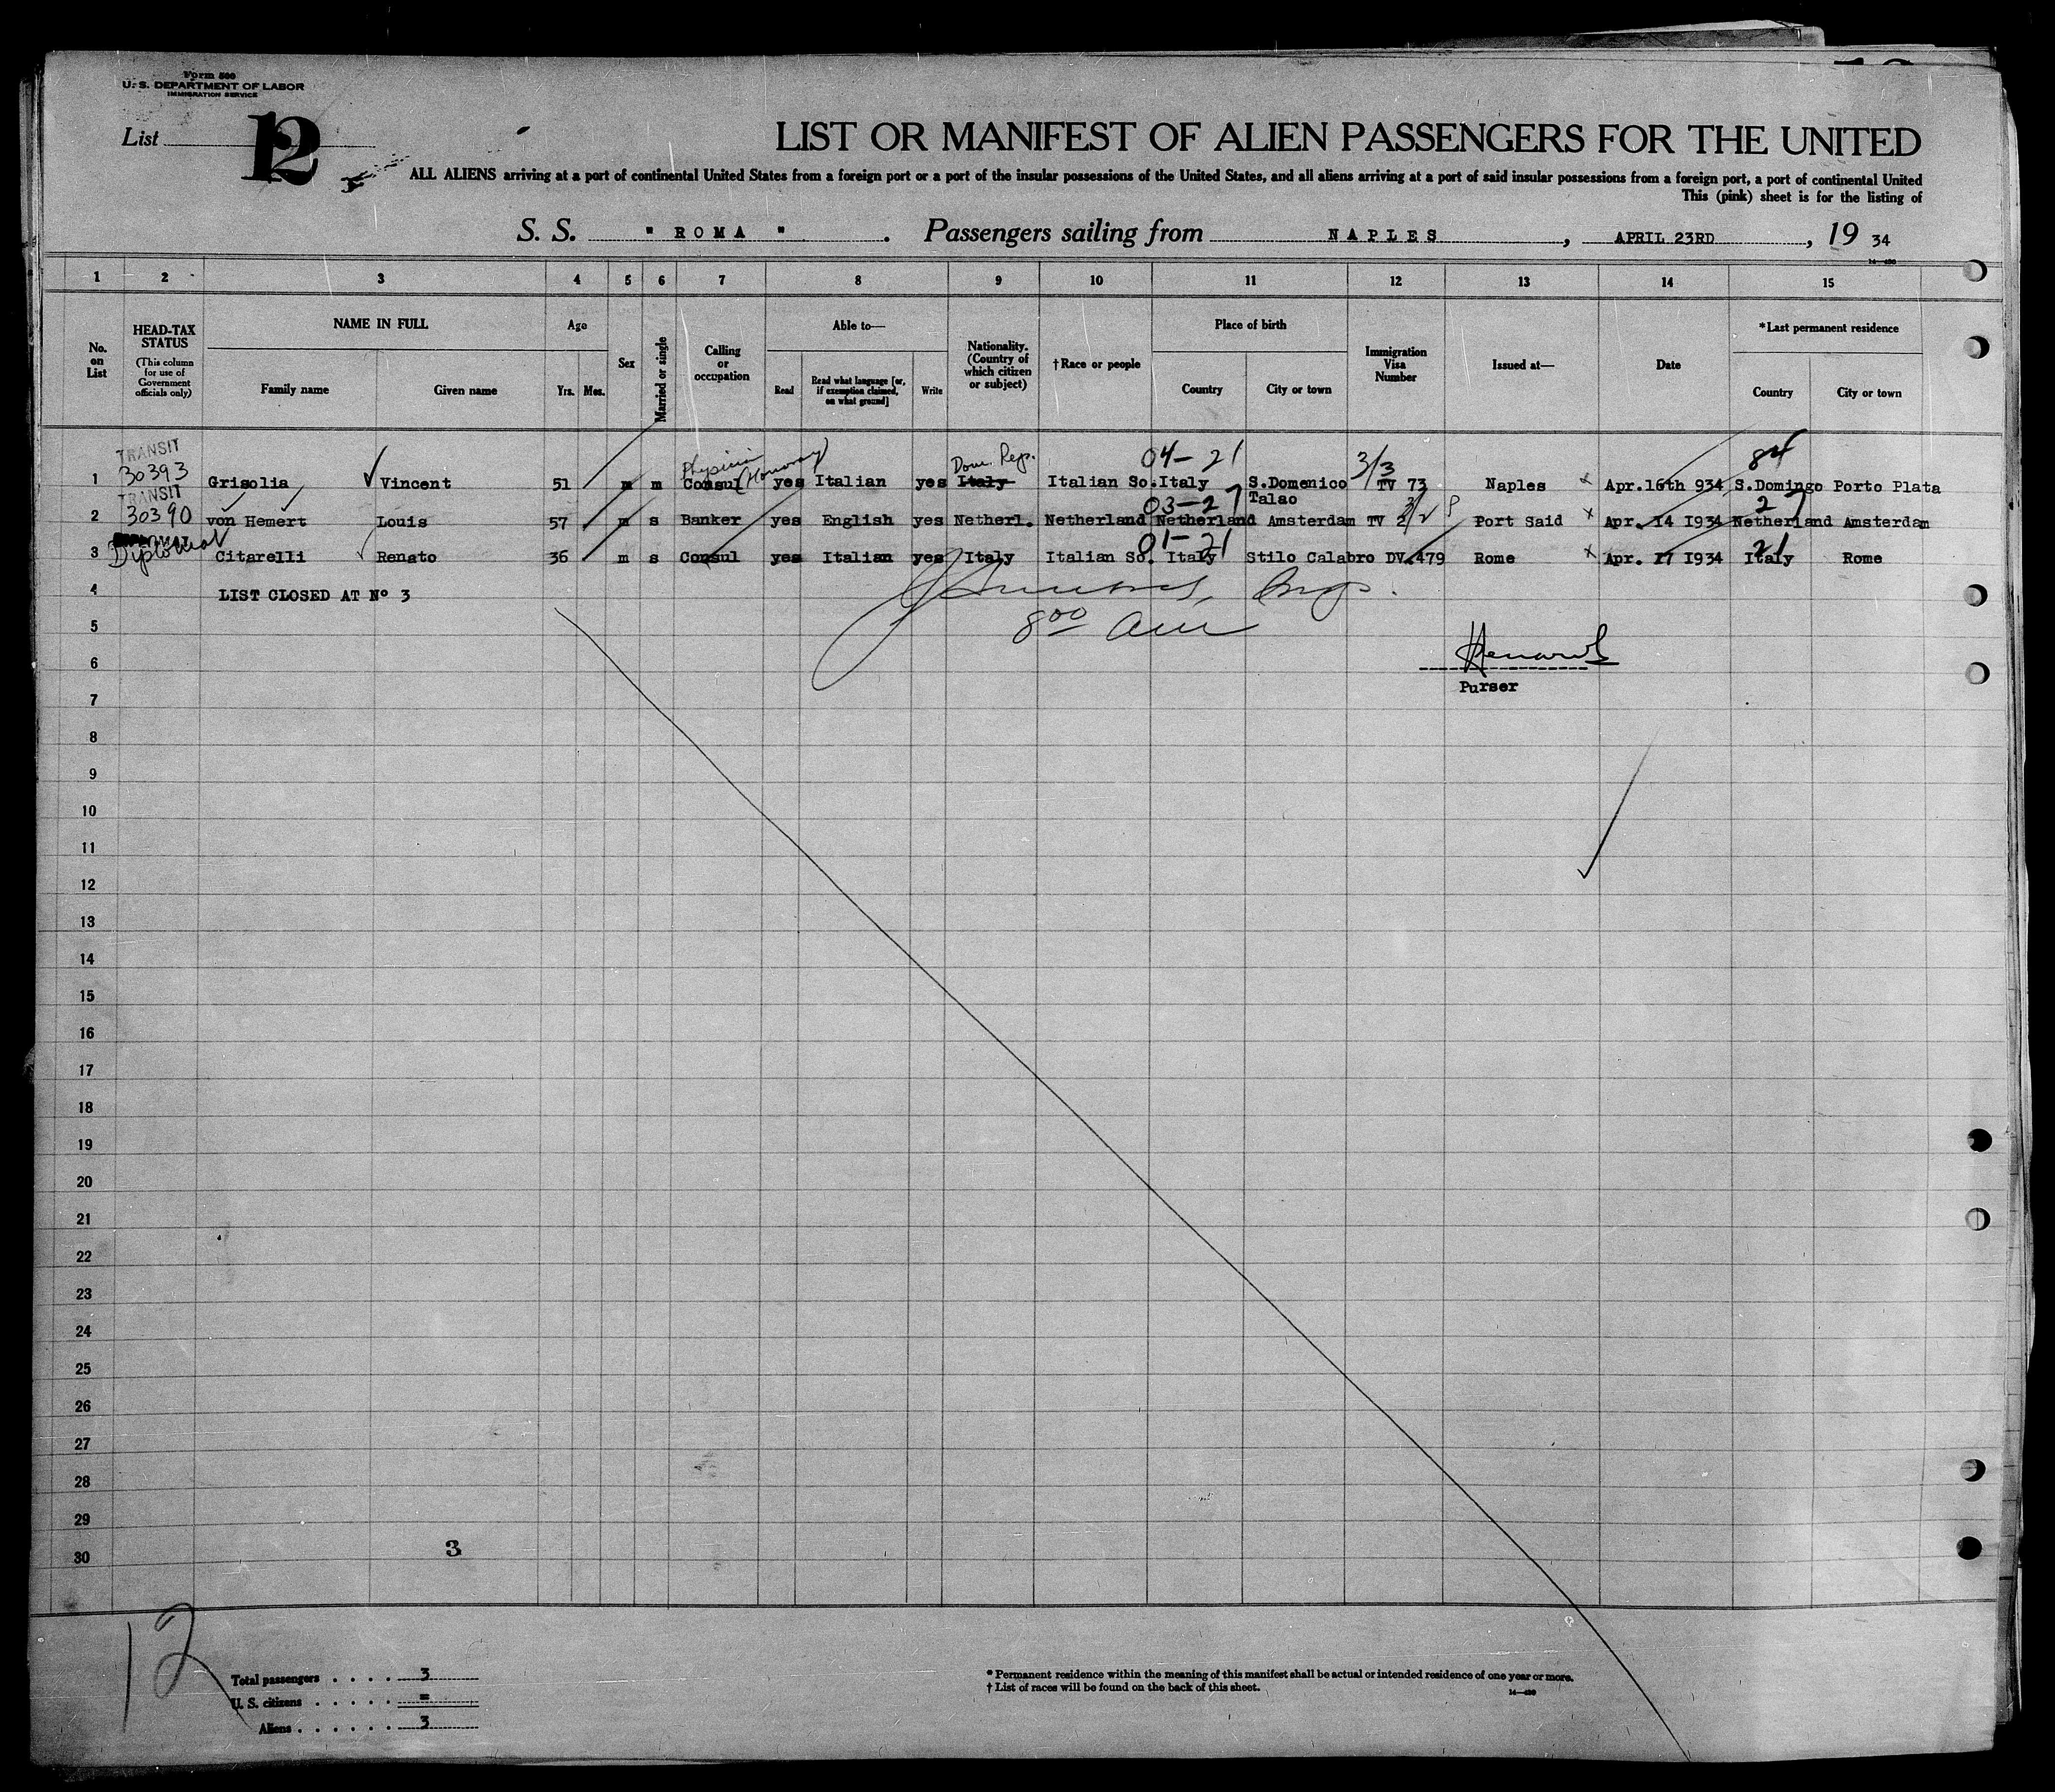 Form 500
U. S. DEPARTMENT OF LABOR
IMMIGRATION SERVICE
List 12
LIST OR MANIFEST OF ALIEN PASSENGERS FOR THE UNITED
ALL ALIENS arriving at a port of continental United States from a foreign port or a port of the insular possessions of the United States, and all aliens arriving at a port of said insular possessions from a foreign port, a port of continental United
This (pink) sheet is for the listing of
S. S. " ROMA " . Passengers sailing from NAPLES , APRIL 23RD , 19 34
1 2 3 4 5 6 7 8 9 10 11 12 13 14 15
No. on List
HEAD-TAX STATUS (This column for use of Government officials only)
NAME IN FULL Family name Given name
Age Yrs. Mos.
Sex
Married or single
Calling or occupation
Able to— Read Read what language [or, if exemption claimed, on what ground] Write
Nationality. (Country of which citizen or subject)
†Race or people
Place of birth Country City or town
Immigration Visa Number
Issued at—
Date
*Last permanent residence Country City or town
TRANSIT Physician (Honorary) Dom. Rep. 04-21 3/3 84
1 30393 Grisolia Vincent 51 m m Consul yes Italian yes Italy Italian So. Italy S.Domenico Talao TV 73 Naples Apr.16th 934 S.Domingo Porto Plata
TRANSIT 03-27 27
2 30390 von Hemert Louis 57 m s Banker yes English yes Netherl. Netherland Netherland Amsterdam TV 2 Port Said Apr. 14 1934 Netherland Amsterdam
01-21 21
3 Diplomat Citarelli Renato 36 m s Consul yes Italian yes Italy Italian So. Italy Stilo Calabro DV.479 Rome Apr. 17 1934 Italy Rome
4 LIST CLOSED AT Nº 3
5 8 00 am
6
Purser
7
8
9
10
11
12
13
14
15
16
17
18
19
20
21
22
23
24
25
26
27
28
29
30 3
12
Total passengers . . . . . 3
U. S. citizens . . . . . =
Aliens . . . . . . 3
* Permanent residence within the meaning of this manifest shall be actual or intended residence of one year or more.
† List of races will be found on the back of this sheet.